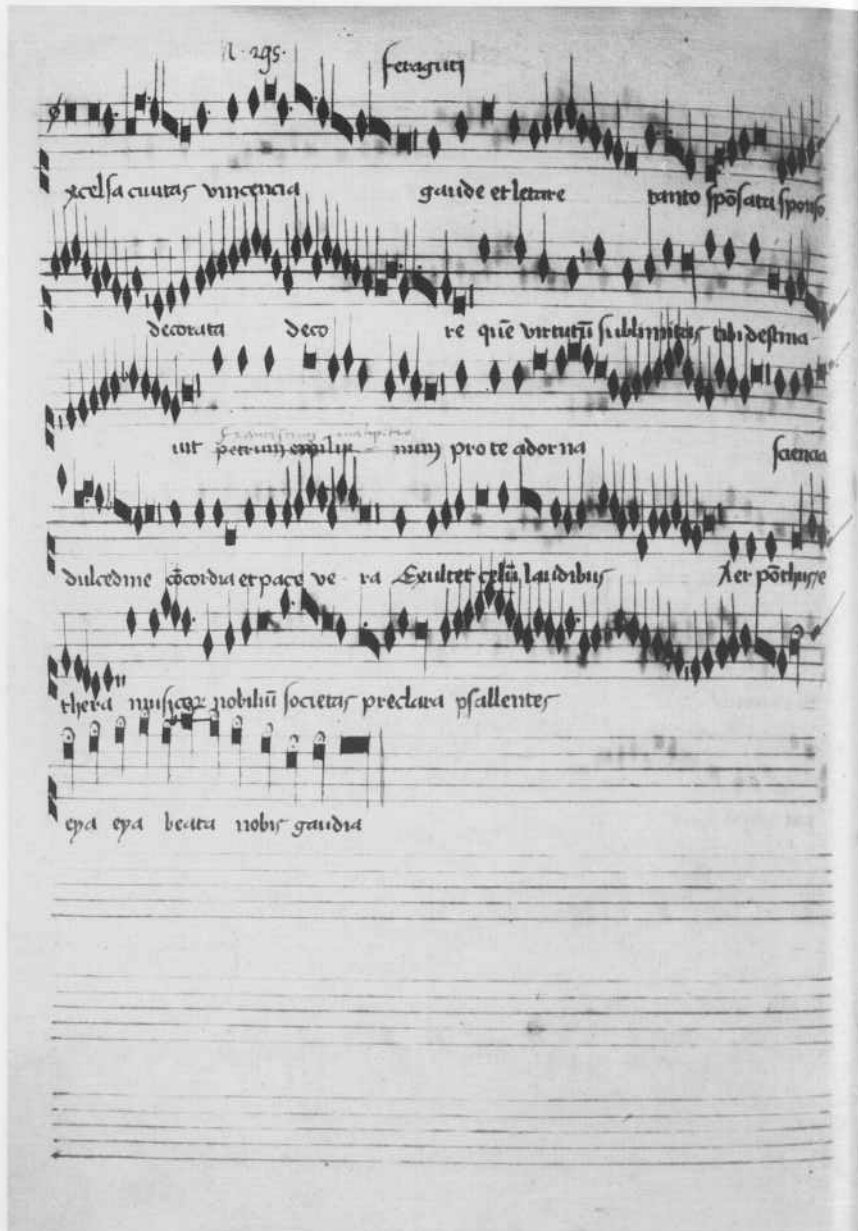 N · 295 ·
feraguti
xcelsa civitas vincencia gaude et letare tanto spōsata sponso
decorata deco re quē virtutū sublimitas tibi destina-
vit petrum emilia num pro te adorna sciencia
dulcedine cōcordia et pace ve - ra Exultet celū laudibus Aer pōthus
thera nobiliū societas preclara psallentes
eya eya beata nobis gaudia